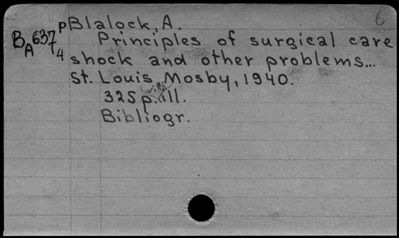 6
pBlalock, A.
BA637
4
Principles of surgical care
shock and other problems...
St. Louis, Mosby, 1940.
325p. ill.
Bibliogr.